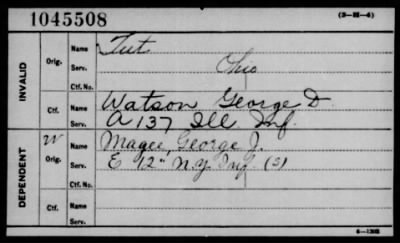 1045508 (3-255-4)
INVALID Orig. Name Tut
Serv. Ohio
Ctf. No.
Ctf. Name Watson George D
Serv. A 137 Ill. Inf.
DEPENDENT W Orig. Name Magee, George J.
Serv. E 12" N.Y. Inf. (S)
Ctf. No.
Ctf. Name
Serv.